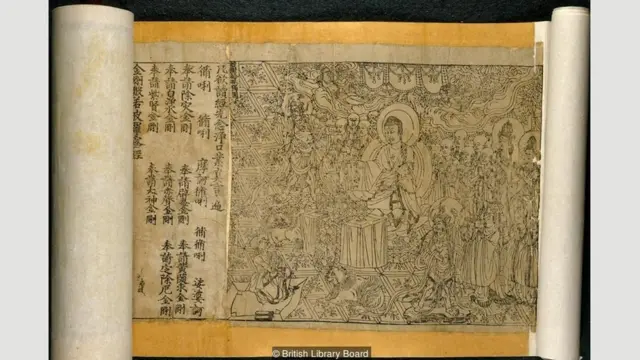 凡欲讀經先念淨口業真言一遍
脩唎 脩唎 摩訶脩唎 脩脩唎 娑婆訶
奉請除灾金剛 奉請辟毒金剛 奉請黄隨求金剛
奉請白淨水金剛 奉請赤聲金剛 奉請定除厄金剛
奉請紫賢金剛 奉請大神金剛
金剛般若波羅蜜經
© British Library Board